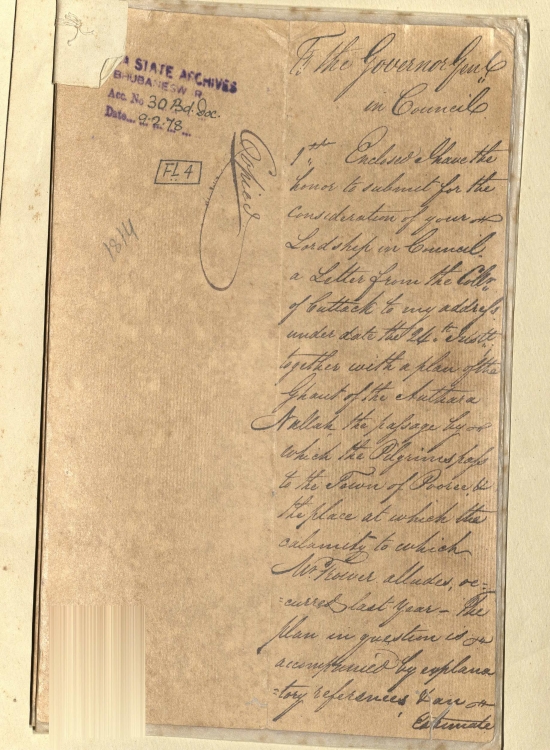 A STATE ARCHIVES
BHUBANESWAR
Acc. No 30 Bd. Doc.
Date 9-2-78
FL 4
1814
Copied
To the Governor Genl
in Council
1st Enclosed I have the
honor to submit for the
consideration of your
Lordship in Council
a Letter from the Collr
of Cuttack to my address
under date the 24th Instt
together with a plan of the
Ghaut of the Authara
Nullah the passage by
which the Pilgrims pass
to the Town of Pooree &
the place at which the
calamity to which
Mr Trower alludes, oc-
=curred last year - The
plan in question is
accompanied by explana
=tory references & an
Estimate